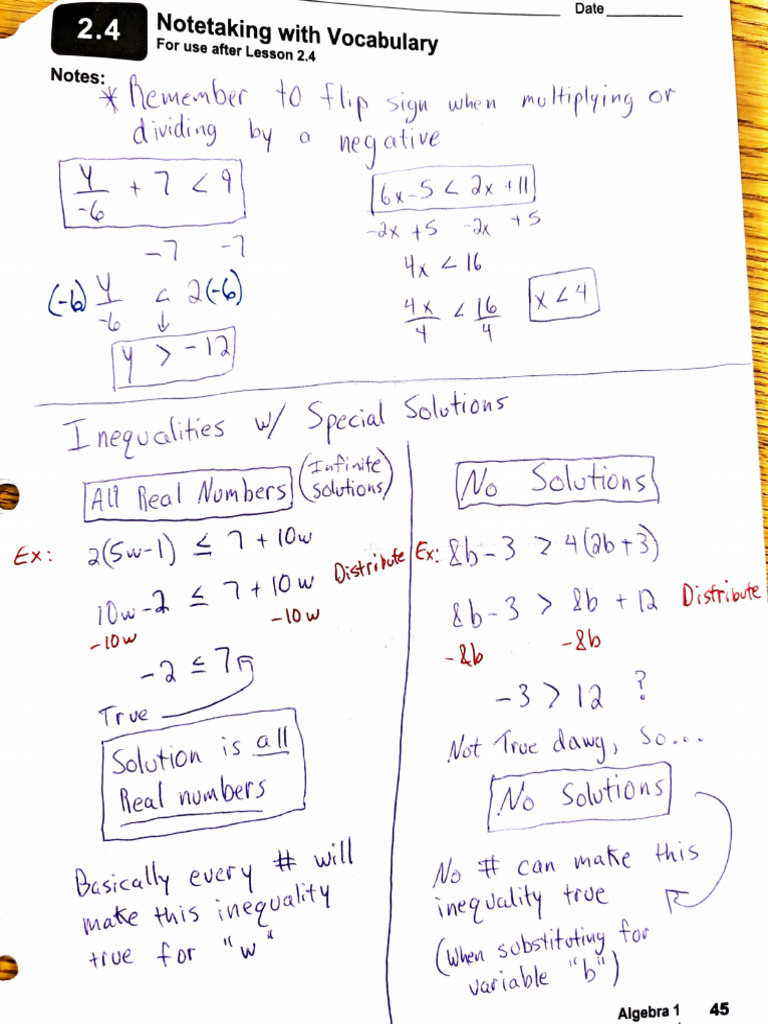 Date
2.4 Notetaking with Vocabulary
For use after Lesson 2.4
Notes:
* Remember to flip sign when multiplying or
dividing by a negative
y/-6 + 7 < 9
-7 -7
(-6) y/-6 < 2(-6)
↓
y > -12
6x-5 < 2x+11
-2x +5 -2x +5
4x < 16
4x/4 < 16/4
x < 4
Inequalities w/ Special Solutions
All Real Numbers (Infinite
solutions)
Ex: 2(5w-1) ≤ 7 + 10w
10w-2 ≤ 7 + 10w Distribute
-10w -10w
-2 ≤ 7
True
Solution is all
Real numbers
Basically every # will
make this inequality
true for "w"
No Solutions
Ex: 8b-3 > 4(2b+3)
8b-3 > 8b + 12 Distribute
-8b -8b
-3 > 12 ?
Not True dawg, So...
No Solutions
No # can make this
inequality true
(when substituting for
variable "b")
Algebra 1 45